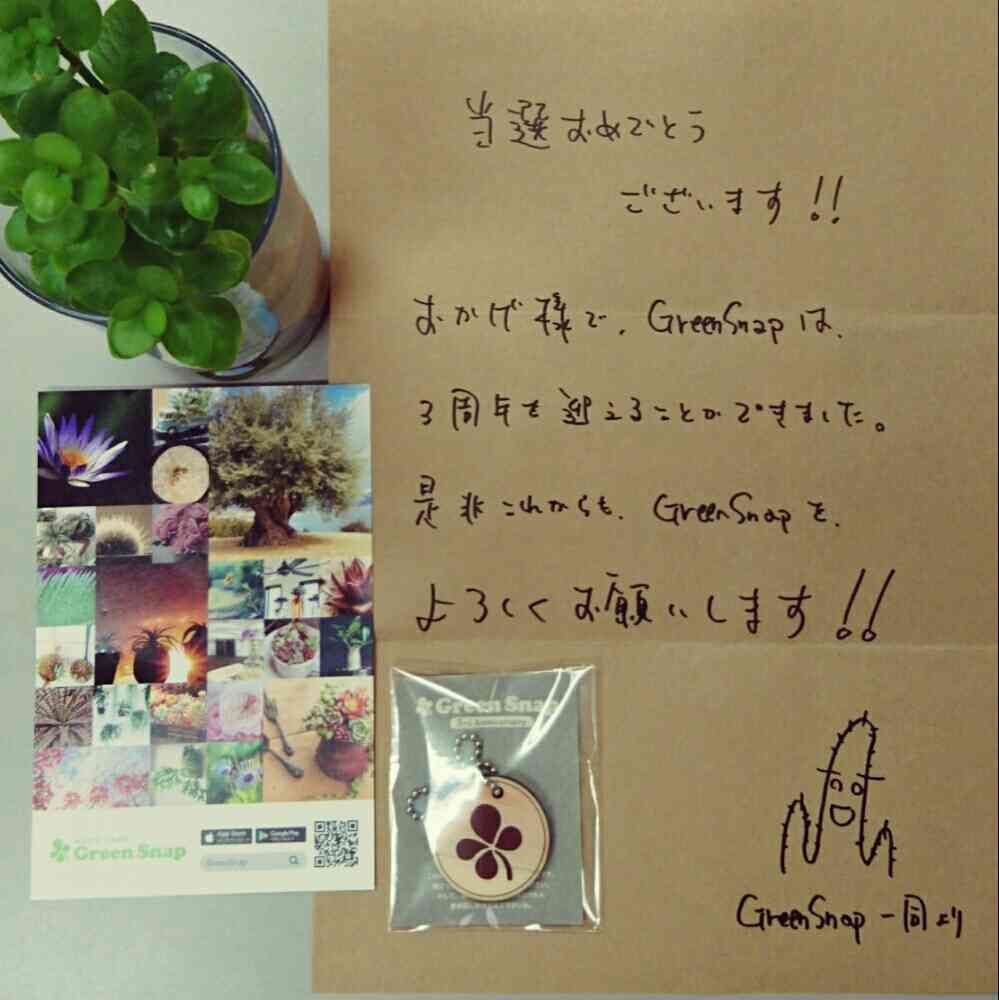 当選おめでとう
ございます!!
おかげ様で、GreenSnapは、
3周年を迎えることができました。
是非これからも、GreenSnapを、
よろしくお願いします!!
GreenSnap一同より
Green Snap
App Store
Google Play
GreenSnap
Green Snap
3rd Anniversary